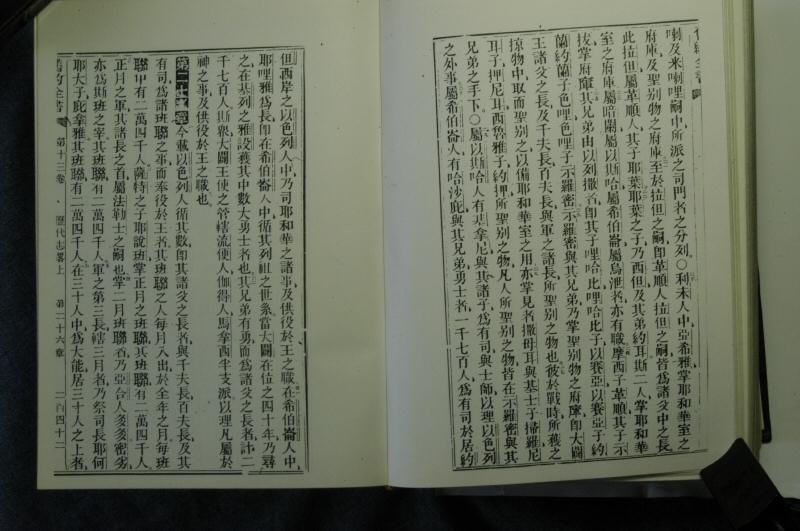 舊約全書
喇及米喇哩嗣中所派之司門者之分列〇利未人中亞希雅掌耶和華室之
府庫及聖別物之府庫至於拉但之嗣卽革順人拉但之嗣皆爲諸父中之長
此拉但屬革順人其子耶葉耶葉之子乃西但及其弟約耳斯二人掌耶和華
室之府庫屬暗蘭屬以斯哈屬希伯崙屬烏泄者亦有職摩西子革順其子示
拔掌府庫其兄弟由以列撒者卽其子哩哈比哩哈比子以賽亞以賽亞子約
蘭約蘭子色哩色哩子示羅密示羅密與其兄弟乃掌聖別物之府庫卽大闢
王諸父之長及千夫長百夫長與軍之諸長所聖別之物也彼於戰時所獲之
掠物中取而聖別之以備耶和華室之用亦掌見者撒母耳與基士子掃羅尼
耳子押尼耳西魯雅子約押所聖別之物凡人所聖別之物皆在示羅密與其
兄弟之手下〇屬以斯哈人有基拿尼與其諸子爲有司與士師以理以色列
之外事屬希伯崙人有哈沙庇與其兄弟勇士者一千七百人爲有司於居約
但西岸之以色列人中乃司耶和華之諸事及供役於王之職在希伯崙人中
耶哩雅爲長卽在希伯崙人中循其列祖之世系當大闢在位之四十年乃尋
之在基列之雅設獲其中數大勇士者也其兄弟有勇而爲諸父之長者計二
千七百人斯衆大闢王使之管轄流便人伽得人馬拿西半支派以理凡屬於
神之事及供役於王之職也
第二十七章今載以色列人循其數卽其諸父之長者與千夫長百夫長及其
有司爲諸班聯之事而奉役於王者其班聯之人每月入出於全年之月每班
聯中有二萬四千人薩特之子耶說班掌正月之班聯其班聯有二萬四千人
正月之軍其諸長之首屬法勒士之嗣也掌二月班聯者乃亞合人多多密劣
亦爲斯班之宰其班聯有二萬四千人軍之第三長轄三月者乃祭司長耶何
耶大子庇拿雅其班聯有二萬四千人在三十人中爲大能居三十人之上者
舊約全書 第十三卷 歷代志畧上 第二十六章 二百四十二